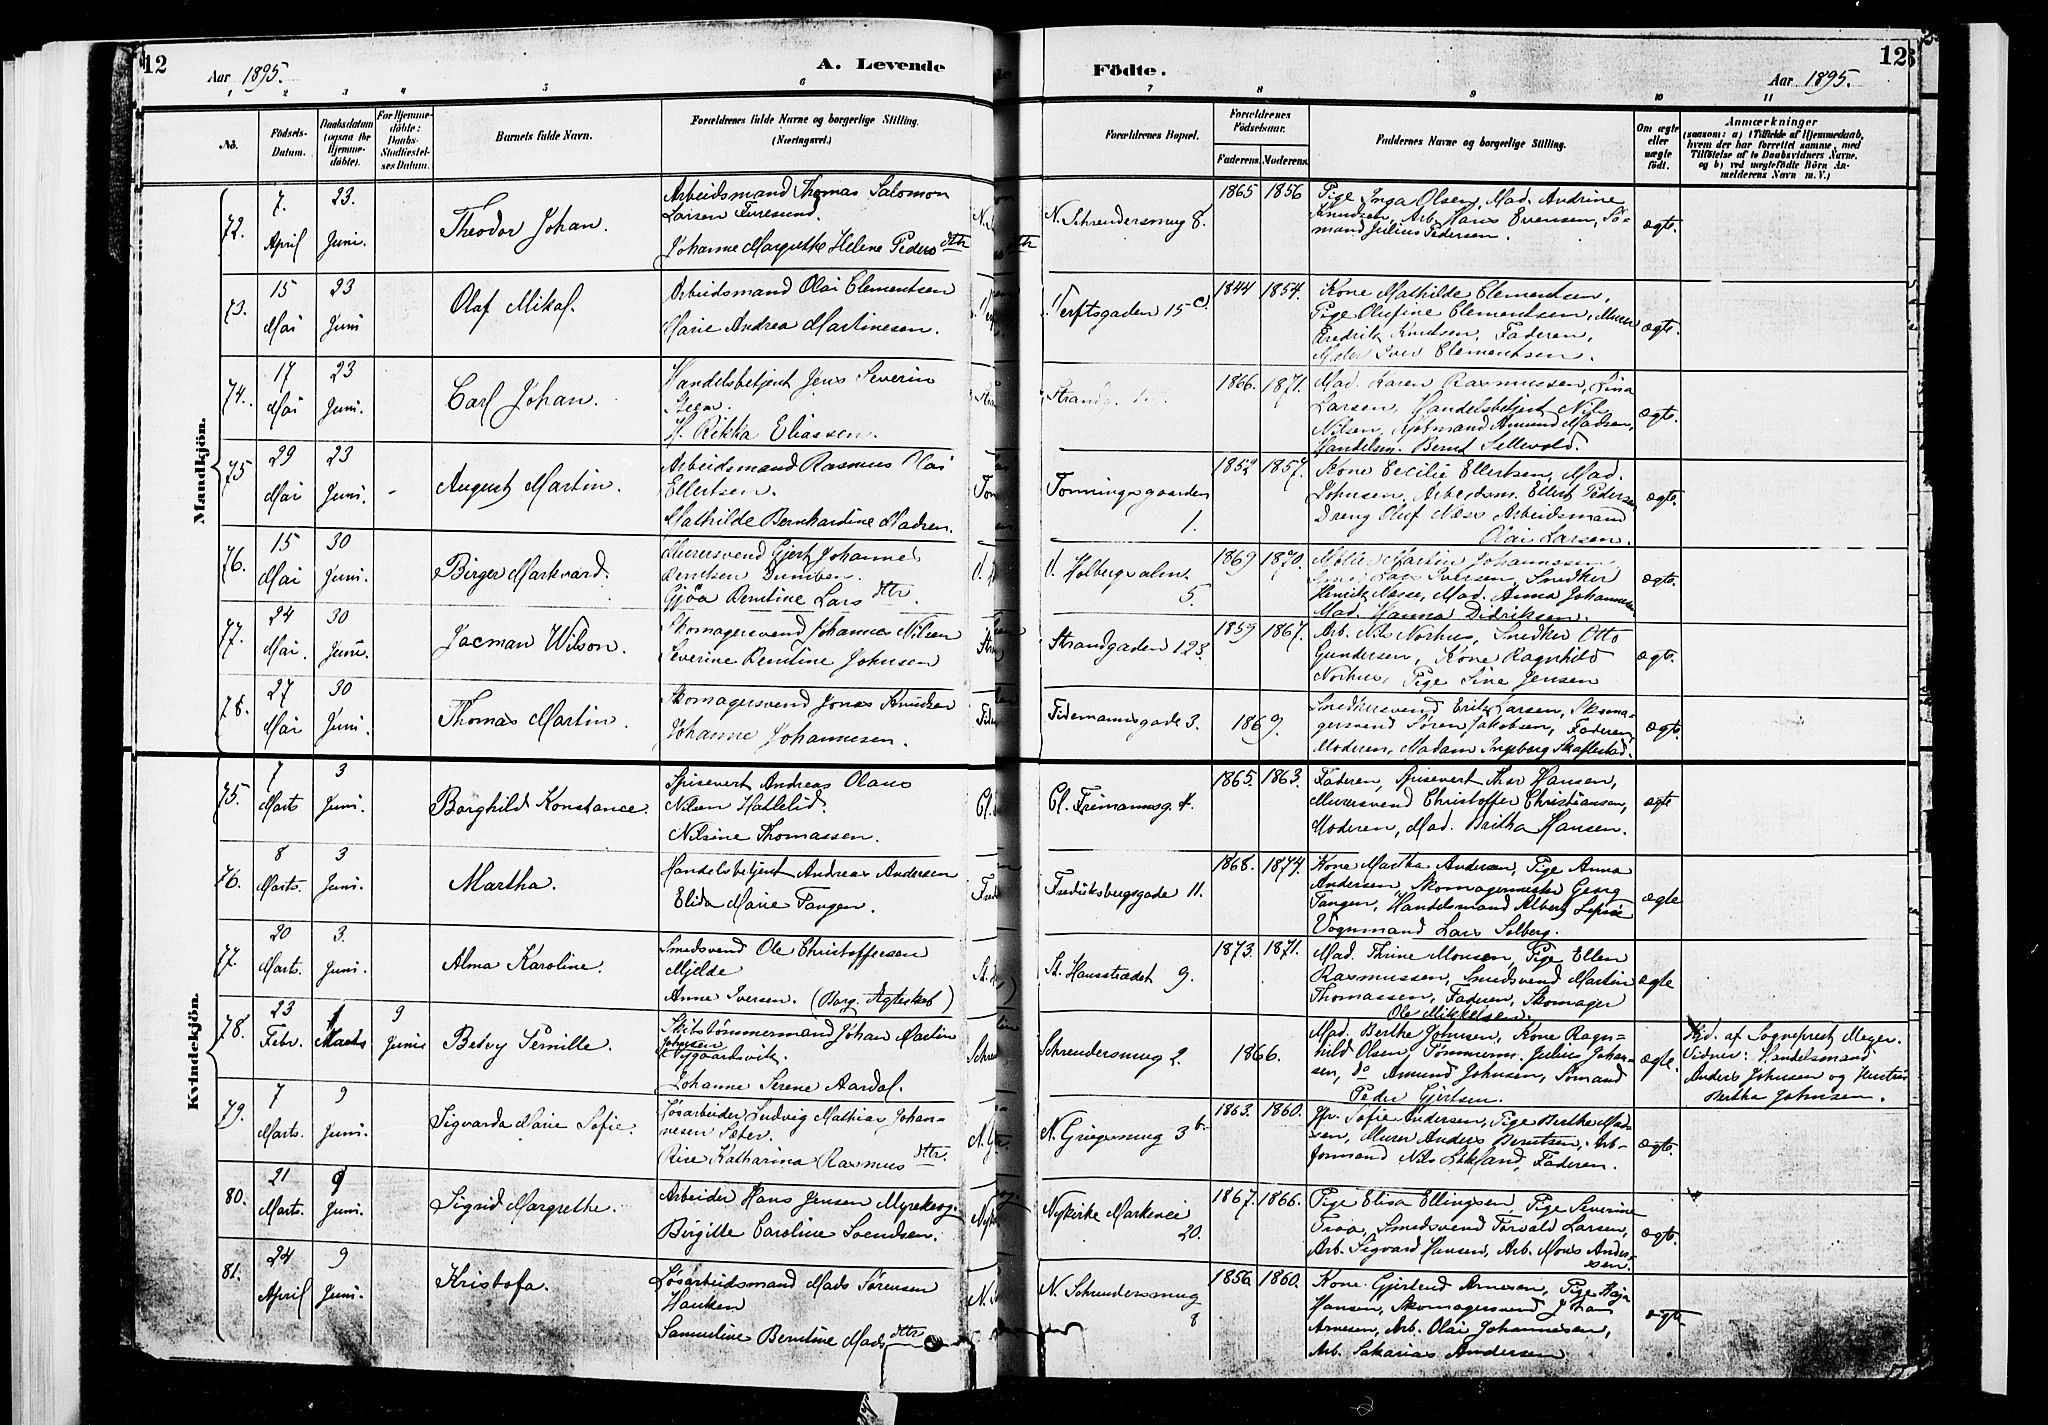 12
Aar 1895.
A. Levende
Födte.
Aar 1895.
12
1 2 3 4 5 6 7 8 9 10 11
No.
Födsels-Datum.
Daabsdatum (ogsaa for Hjemmedöbte).
For Hjemmedöbte: Daabs-Stadfæstelses Datum.
Barnets fulde Navn.
Forældrenes fulde Navne og borgerlige Stilling.
(Næringsvei.)
Forældrenes Bopæl.
Forældrenes Födselsaar.
Faderens. Moderens.
Faddernes Navne og borgerlige Stilling.
Om ægte eller uægte födt.
Anmærkninger
(saasom: a) i Tilfælde af Hjemmedaab, hvem der har forrettet samme, med Tilföielse af to Daabsvidners Navne, og b) ved uægtefödte Börn Anmelderens Navn m. V.)
Mandkjön.
72. 7. April 23. Juni. Theodor Johan.
Arbeidsmand Thomas Salomon
Larsen
Johanne Margrethe Helene Peders dtr
N. Schreudersmug 8. 1865 1856
Pige Inga Olsen, Mad. Andrine
Knudsen, Arb. Hans Evensen, Sö-
mand Julius Pedersen.
ægte.
73. 15 Mai 23 Juni Olaf Mikal.
Arbeidsmand Olai Clementsen
Marie Andrea Martinesen.
Verftsgaden 15 c. 1844 1854.
Kone Mathilde Clementsen,
Pige Olufine Clementsen, Murer
Fredrik Knudsen, Faderen,
Maler Iver Clementsen.
ægte.
74. 17 Mai 23 Juni. Carl Johan.
Handelsbetjent Jens Severin
Steen.
H. Rikka Eliassen.
1866. 1871.
Mad. Karen Rasmussen, Lina
Larsen, Handelsbetjent Nils
Nilsen, Kjöbmand Amund Madsen,
Handelsm. Bernt Sellevold.
ægte.
75 29 Mai 23 Juni. - August Martin.
Arbeidsmand Rasmus Olai
Ellertsen.
Mathilde Bernhardine Madsen.
Tonningsgaarden
1. 1852 1857.
Kone Cecilie Ellertsen, Mad.
Johnsen, Arbeidsm. Ellert Pedersen
Dreng Oluf Næss Arbeidsmand
Olai Larsen.
ægte.
76. 15 Mai 30 Juni. Birger Markvard.
Murersvend Gjert Johannes
Berntsen
Gjöa Berntine Lars dtr.
Holbergsalm.
5. 1869 1870.
Martin Johannessen
Lars Iversen, Snedker
Henrik Masse, Mad. Anna Johannesen
Mad. Hanna Didriksen.
ægte.
77. 24 Mai. 30 Juni. Jacman Wilson.
Skomagersvend Johannes Nilsen
Severine Berntine Johnsen
Strandgaden 123. 1859 1867.
Arb. Nils Norhus, Snedker Otto
Gundersen, Kone Ragnhild
Norhus, Pige Sine Jensen
ægte.
78. 27 Mai 30 Juni. Thomas Martin.
Skomagersvend Jonas Knudsen
Johanne Johannesen.
Fidemannsgade 3. 1869.
Snedkersvend Erik Larsen, Skoma-
gersvend Sören Jakobsen, Faderen,
Moderen, Madam Ingeborg Skaflestad.
ægte.
Kvindekjön.
75. 7 Marts 3 Juni. Borghild Konstance.
Spisevert Andreas Olaus
Nilsen Hatlelid.
Nilsine Thomassen.
Cl. Friemannsg. 4. 1865. 1863.
Faderen, Spisevert Thor Hansen,
Murersvend Christoffer Christiansen,
Moderen, Mad. Britha Hansen.
ægte
76. 8 Marts. 3 Juni. Martha.
Handelsbetjent Andreas Andersen
Elida Marie Tangen.
Fredriksbergsgade 11. 1868. 1874.
Kone Martha Andersen, Pige Anna
Andersen, Skomagermester Georg
Tangen, Handelsmand Albert
Vognmand Lars Selberg.
ægte
77. 20 Marts. 3. Juni. Alma Karoline.
Smedsvend Ole Christoffersen
Mjelde
Anne Iversen. (Borg. Ægteskab)
St. Hansstrædet 9. 1873. 1871.
Mad. Thrine Monsen, Pige Ellen
Rasmussen, Smedsvend Martin
Thomassen, Faderen, Skomager
Ole Mikkelsen.
ægte
78. 23 Febr. 1 Marts 9 Juni Betsy Pernille.
Skibstömmermand Johan Martin
Johnsen
Nygaardsvik.
Johanne Serene Aardal.
Schreudersmug 2. 1866.
Mad. Berthe Johnsen, Kone Ragn-
hild Olsen, Tömmerm. Julius Johan-
sen, do Amund Johnsen, Sömand
Peder Gjertsen.
ægte.
Hjd. af Sogneprest Meyer.
Vidner: Handelsmand
Anders Johnsen og Hustru
Bertha Johnsen.
79. 7 Marts. 9 Juni. Sigvarda Marie Sofie.
Lösarbeider Ludvig Mathias Johan-
nesen Sæter.
Rise Katharina Rasmus dtr.
N. Griegsmug 3 b 1863. 1860.
Fr. Sofie Andersen, Pige Berthe Mad-
sen, Murer Anders Berntsen, Arb-
formand Nils Lökland, Faderen.
ægte.
80. 21 Marts. 9 Juni. Sigrid Margrethe.
Arbeider Hans Jensen Myrekrog.
Birgitte Caroline Svendsen.
Nykirke Markevei
20. 1867. 1866.
Pige Elisa Ellingsen, Pige Severine
Troa, Smedsvend Torvald Larsen,
Arb. Sigvard Hansen, Arb. Mons Ander-
sen.
ægte.
81. 24 April 9 Juni. Kristofa.
Lösarbeidsmand Mads Sörensen
Hauken
Samueline Berntine Mads dtr
N. Schreudersmug
8 1856 1860.
Kone Gjertrud Arnesen, Pige Kaja
Hansen, Skomagersvend Johan
Arnesen, Arb. Olai Johannesen,
Arb. Sakarias Andersen
ægte